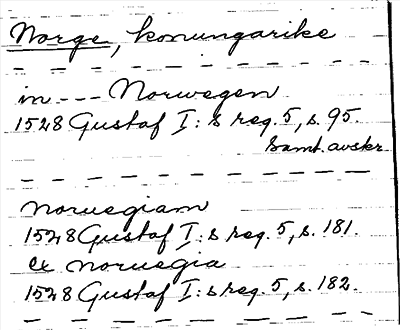 Norge, konungarike
in --- Norwegen
1528 Gustaf I:s reg. 5, s. 95.
Samt. avskr.
Norwegiam
1528 Gustaf I:s reg. 5, s. 181.
ex Norwegia
1528 Gustaf I:s reg. 5, s. 182.